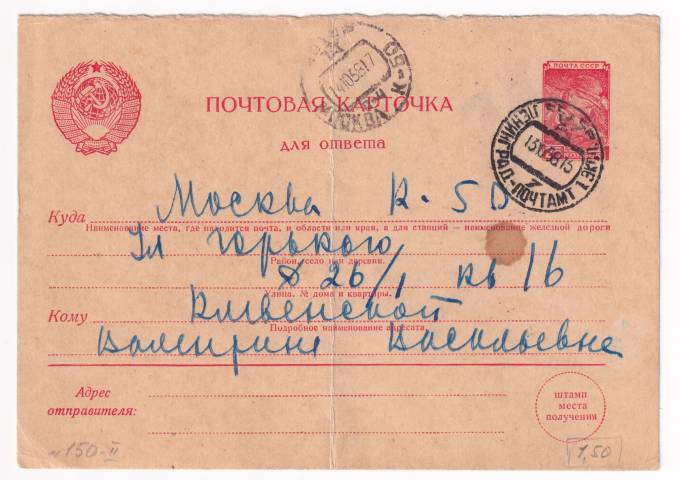 ПОЧТА СССР
ПОЧТОВАЯ КАРТОЧКА
для ответа
МОСКВА К-50
ЛЕНИНГРАД-ПОЧТАМТ
Москва К-50
Куда
Наименование места, где находится почта, и области или края, а для станций — наименование железной дороги
Ул Горького
Район, село или деревня.
д 26/1 кв 16
Улица, № дома и квартиры.
Кому
Подробное наименование адресата.
Валентине Васильевне
Адрес
отправителя:
штамп
места
получения
150-II
1,50